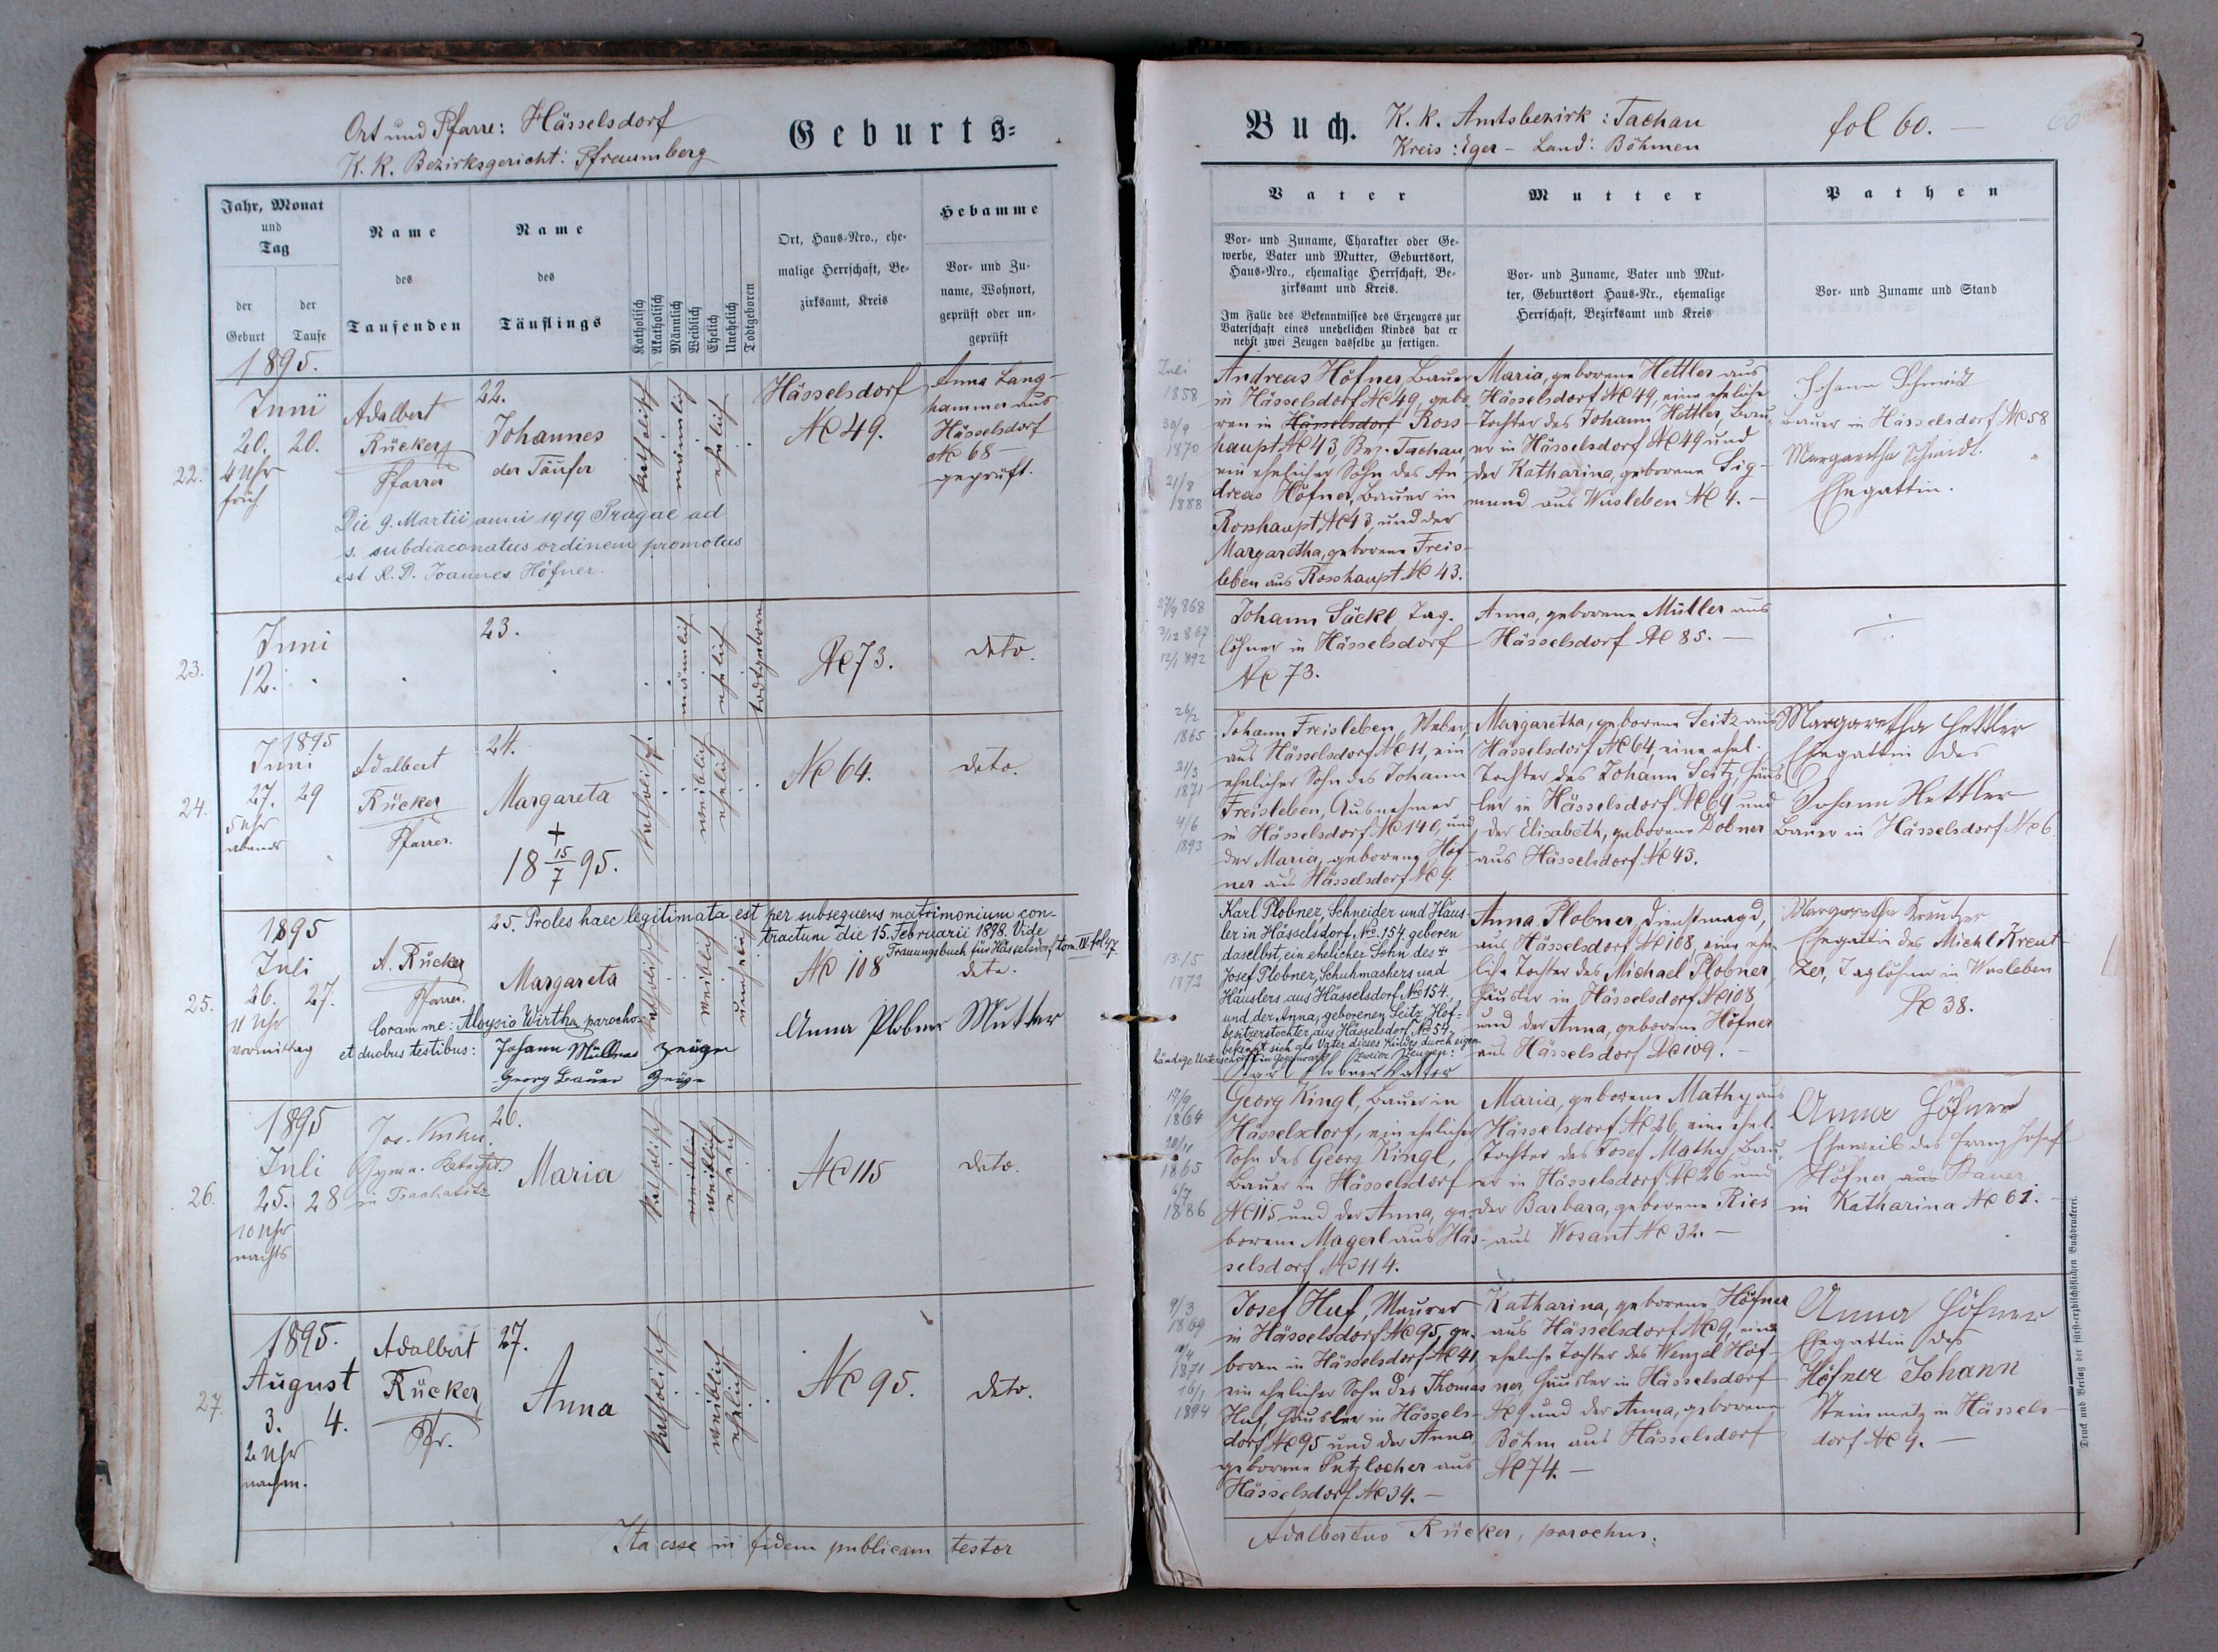 Ort und Pfarre: Hässelsdorf
K. k. Bezirksgericht: Pfraumberg
Geburts=
Jahr, Monat
und
Tag
der Geburt
der Taufe
Name
des
Taufenden
Name
des
Täuflings
Katholisch
Akatholisch
Männlich
Weiblich
Ehelich
Unehelich
Todtgeboren
Ort, Haus-Nro., ehe-
malige Herrschaft, Be-
zirksamt, Kreis
Hebamme
Vor- und Zu-
name, Wohnort,
geprüft oder un-
geprüft
1895.
22.
Juni
20. 20.
4 Uhr
früh
Adalbert
Rücker
Pfarrer
22.
Johannes
der Täufer
katholisch
männlich
ehelich
Hässelsdorf
No 49.
Anna Lang-
hammer aus
Hässelsdorf
No 68 —
geprüft.
Die 9. Martii anni 1919 Pragae ad
s. subdiaconatus ordinem promotus
est R. D. Joannes Höfner.
23.
Juni
12.
23.
männlich
ehelich
todtgeboren
No 73.
deto.
24.
1895
Juni
27. 29
5 Uhr
abends
Adalbert
Rücker
Pfarrer.
24.
Margareta
+
18 15/7 95.
katholisch
weiblich
ehelich
No 64.
deto.
25.
1895
Juli
26. 27.
11 Uhr
vormittag
A. Rücker
Pfarrer.
25. Proles haec legitimata est per subsequens matrimonium con-
tractum die 15. Februarii 1898. Vide
Trauungsbuch für Hässelsdorf tom. IV. fol 47.
Margareta
katholisch
weiblich
unehelich
No 108
deto.
Coram me: Aloysio Wirtha parocho
et duobus testibus: Johann Müllner Zeuge
Georg Bauer Zeuge
Anna Plobner Mutter
26.
1895
Juli
25. 28
10 Uhr
nachts
Jos. Kuhn
in Prachatitz
26.
Maria
katholisch
weiblich
ehelich
No 115
deto.
27.
1895.
August
3. 4.
2 Uhr
nachm.
Adalbert
Rücker
Pfr.
27.
Anna
katholisch
weiblich
ehelich
No 95.
deto.
Ita esse in fidem publicam testor
Buch.
K. k. Amtsbezirk: Tachau
Kreis: Eger – Land: Böhmen
fol 60. —
60
Vater
Vor- und Zuname, Charakter oder Ge-
werbe, Vater und Mutter, Geburtsort,
Haus-Nro., ehemalige Herrschaft, Be-
zirksamt und Kreis.
Im Falle des Bekenntnisses des Erzeugers zur
Vaterschaft eines unehelichen Kindes hat er
nebst zwei Zeugen dasselbe zu fertigen.
Mutter
Vor- und Zuname, Vater und Mut-
ter, Geburtsort Haus-Nr., ehemalige
Herrschaft, Bezirksamt und Kreis
Pathen
Vor- und Zuname und Stand
Juli
1858
30/9
1870
21/8
1888
Andreas Höfner, Bauer
in Hässelsdorf No 49, gebo-
ren in Hässelsdorf Ross-
haupt No 43, Bez. Tachau,
ein ehelicher Sohn des An-
dreas Höfner, Bauer in
Rosshaupt No 43, und der
Margaretha, geborene Freis-
leben aus Rosshaupt No 43.
Maria, geborene Hettler aus
Hässelsdorf No 49, eine eheliche
Tochter des Johann Hettler, Bau-
er in Hässelsdorf No 49 und
der Katharina, geborene Sig-
mund aus Wusleben No 4. —
Johann Schmidt
Bauer in Hässelsdorf No 58
Margaretha Schmidt.
Ehegattin.
27/9 868
3/12 867
12/1 892
Johann Säckl, Tag-
löhner in Hässelsdorf
No 73.
Anna, geborene Müller aus
Hässelsdorf No 85. —
26/2
1865
21/3
1871
4/6
1893
Johann Freisleben, Weber,
aus Hässelsdorf No 11, ein
ehelicher Sohn des Johann
Freisleben, Ausnehmer
in Hässelsdorf No 140, und
der Maria, geborene Höf-
ner aus Hässelsdorf No 9.
Margaretha, geborene Seitz aus
Hässelsdorf No 64, eine ehel.
Tochter des Johann Seitz, Häus-
ler in Hässelsdorf No 64 und
der Elisabeth, geborene Dobner
aus Hässelsdorf No 43.
Margaretha Hettler
Ehegattin des
Johann Hettler
Bauer in Hässelsdorf No 6
13/5
1872
Karl Plobner, Schneider und Häus-
ler in Hässelsdorf, No. 154, geboren
daselbst, ein ehelicher Sohn des +
Josef Plobner, Schuhmachers und
Häuslers aus Hässelsdorf No 154,
und der Anna, geborenen Seitz, Hof-
besitzerstochter aus Hässelsdorf, No 54,
bekennt sich als Vater dieses Kindes durch eigen-
händige Unterschrift in Gegenwart zweier Zeugen:
Karl Plobner Vatter
Anna Plobner, Dienstmagd,
aus Hässelsdorf No 108, eine ehe-
liche Tochter des Michael Plobner,
Häusler in Hässelsdorf No 108
und der Anna, geborene Höfner
aus Hässelsdorf No 109. —
Margaretha Kreutzer
Ehegattin des Michl Kreut-
zer, Taglöhner in Wusleben
No 38.
17/9
1864
20/11
1865
6/7
1886
Georg Kingl, Bauer in
Hässelsdorf, ein ehelicher
Sohn des Georg Kingl,
Bauer in Hässelsdorf
No 115 und der Anna, ge-
borene Magerl aus Häs-
selsdorf No 114.
Maria, geborene Mathy aus
Hässelsdorf No 26, eine ehel.
Tochter des Josef Mathy, Bau-
er in Hässelsdorf No 26 und
der Barbara, geborene Ries
aus Wosant No 32. —
Anna Höfner
Eheweib des Franz Josef
Höfner aus Bauer
in Katharina No 61.
9/3
1869
1871
16/1
1894
Josef Huf, Maurer
in Hässelsdorf No 95, ge-
boren in Hässelsdorf No 41,
ein ehelicher Sohn des Thomas
Huf, Häusler in Hässels-
dorf No 95 und der Anna,
geborene Putzlocher aus
Hässelsdorf No 34. —
Katharina, geborene Höfner
aus Hässelsdorf No 9, eine
eheliche Tochter des Wenzel Höf-
ner, Häusler in Hässelsdorf
No 9 und der Anna, geborene
Böhm aus Hässelsdorf
No 74. —
Anna Höfner
Ehegattin des
Höfner Johann
Steinmetz in Hässels-
dorf No 9. —
Adalbertus Rücker, parochus.
Druck und Verlag der fürst-erzbischöflichen Buchdruckerei.